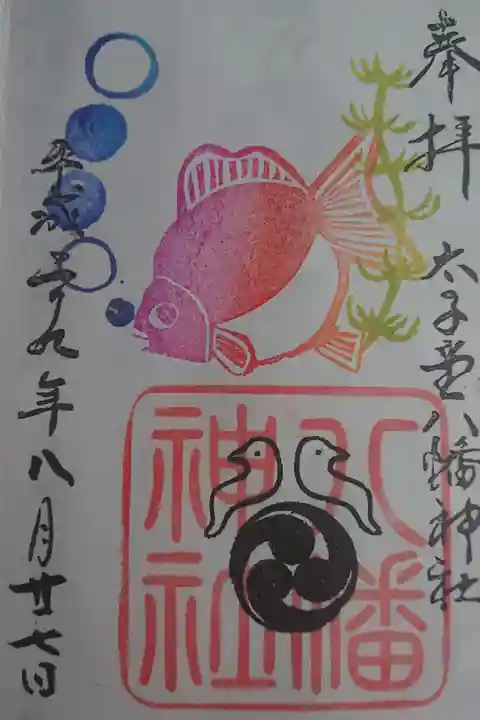 奉拝
太子堂八幡神社
八幡
神社
平成二十九年八月廿七日